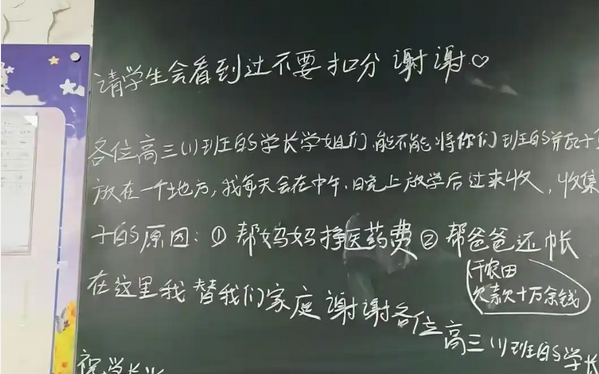 请学生会看到过不要扣分 谢谢♡
各位高三(1)班的学长学姐们,能不能将你们班的并瓦子
放在一个地方,我每天会在中午、日免上放学后过来收,收集
子的原因:① 帮妈妈挣医药费 ② 帮爸爸还帐
干农田
欠款十万余钱
在这里我替我们家庭谢谢各位
高三(1)班的学长
祝学长